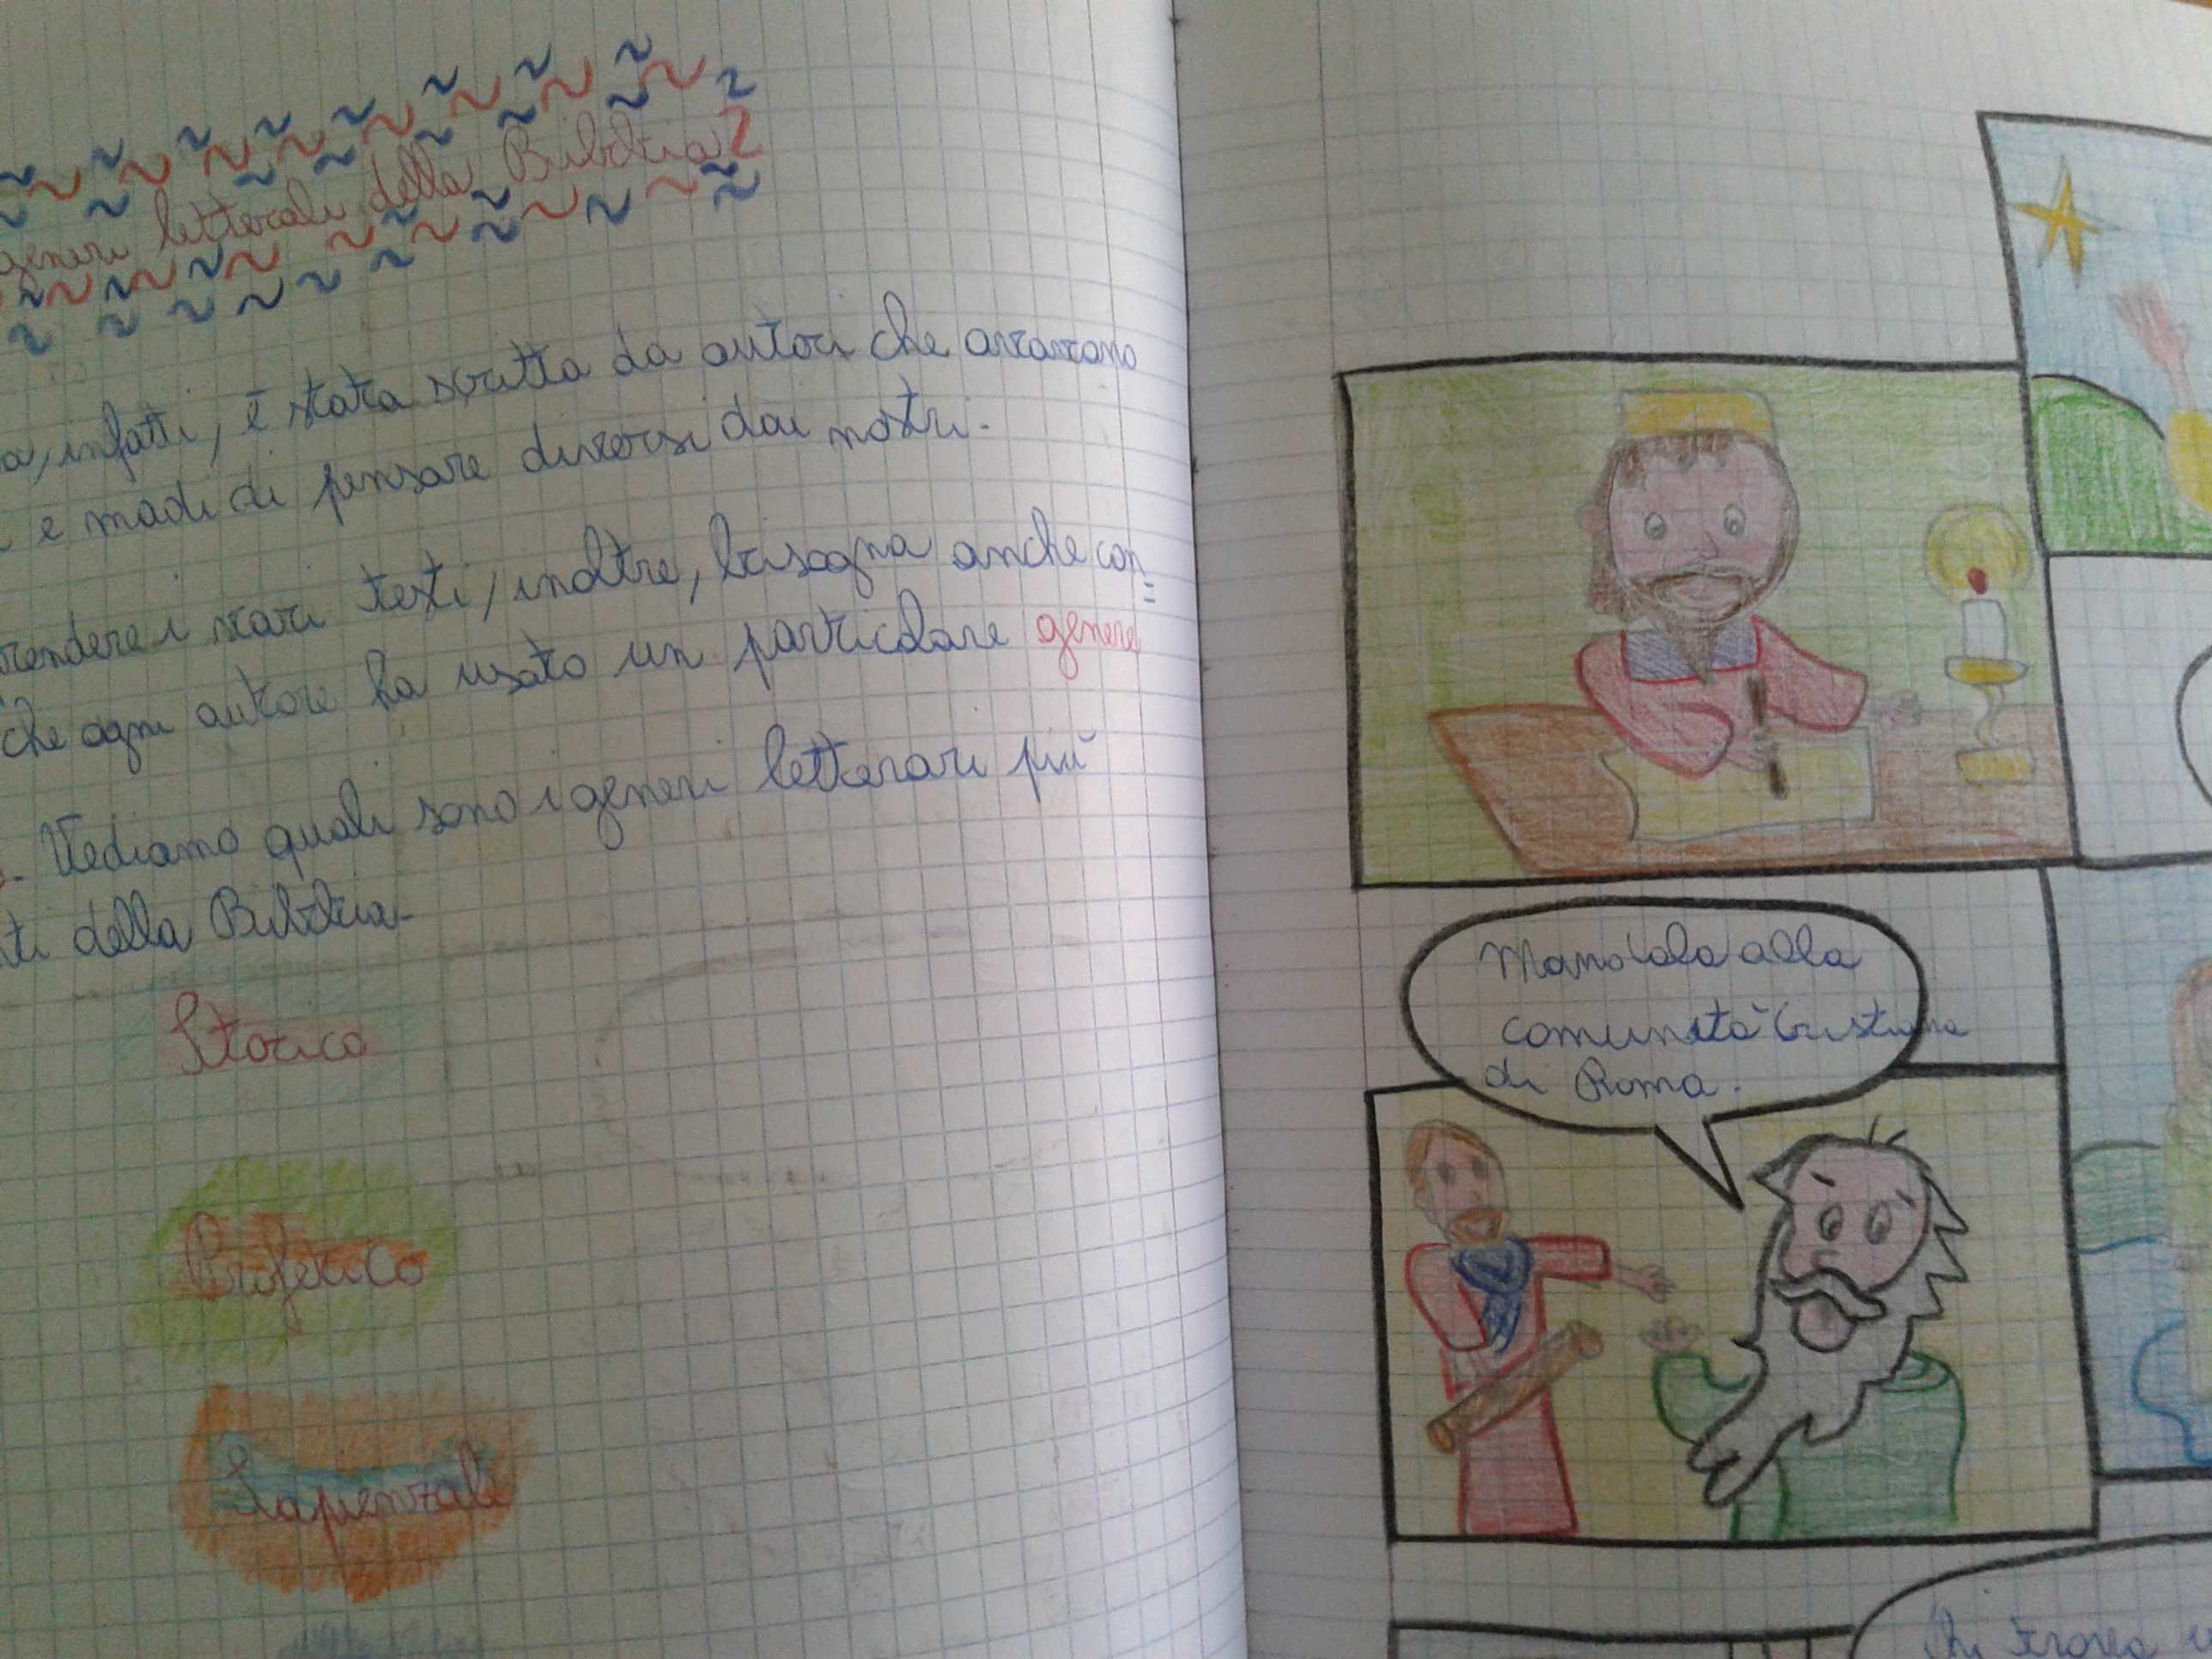 generi letterali della Bibbia
a, infatti, è stata scritta da autori che avevano
e modi di pensare diversi dai nostri.
rendere i vari testi, inoltre, bisogna anche con=
che ogni autore ha usato un particolare genere
. Vediamo quali sono i generi letterari più
ti della Bibbia.
Storico
Profetico
Sapienzale
Mandala alla
comunità Cristiana
di Roma.